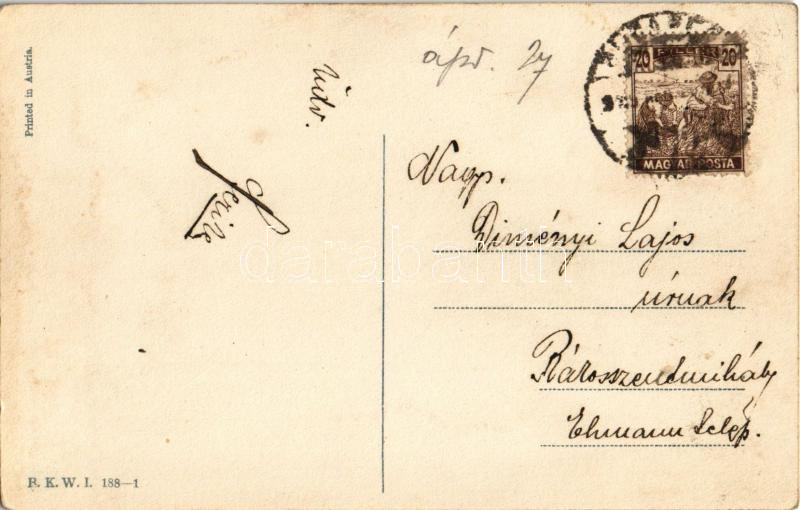 Printed in Austria.
ápr. 27
20 20
MAGYAR POSTA
Üdv.
Nagys.
Diményi Lajos
úrnak
Rákosszentmihály
Ehmann telep.
darabanth
B. K. W. I. 188—1